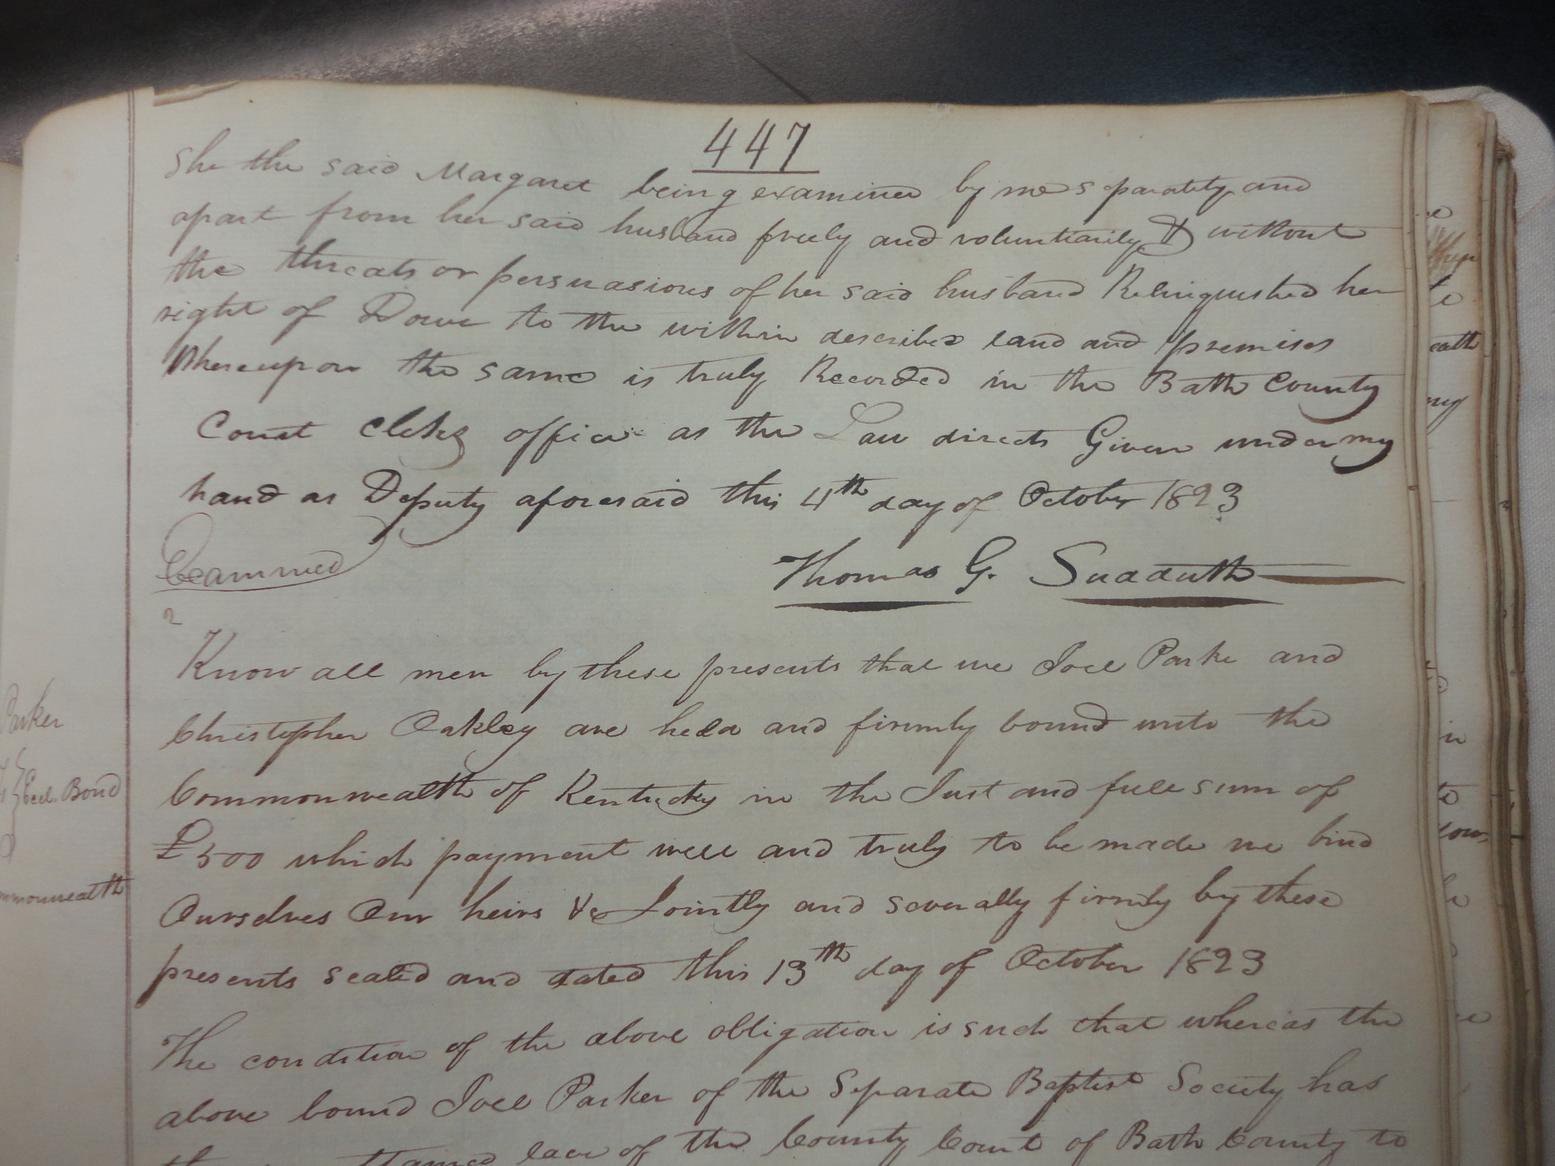 447
She the said Margaret being examined by me separately and
apart from her said husband freely and voluntiarily & without
the threats or persuasions of her said husband Relinquished her
right of Dowe to the within described land and premises
Whereupon the same is truly Recorded in the Bath County
Court clerks office as the Law directs Given under my
hand as Deputy aforesaid this 4th day of October 1823
Examined
Thomas G. Sudduth
Know all men by these presents that we Joel Parke and
Christopher Oakley are held and firmly bound unto the
Parker
Commonwealth of Kentucky in the Just and full sum of
Bond
£500 which payment well and truly to be made we bind
Ourselves Our heirs &c Jointly and severally firmly by these
mmonwealth
presents sealed and dated this 13th day of October 1823
The condition of the above obligation is such that whereas the
above bound Joel Parker of the Separate Baptist Society has
law of the County Court of Bath County to